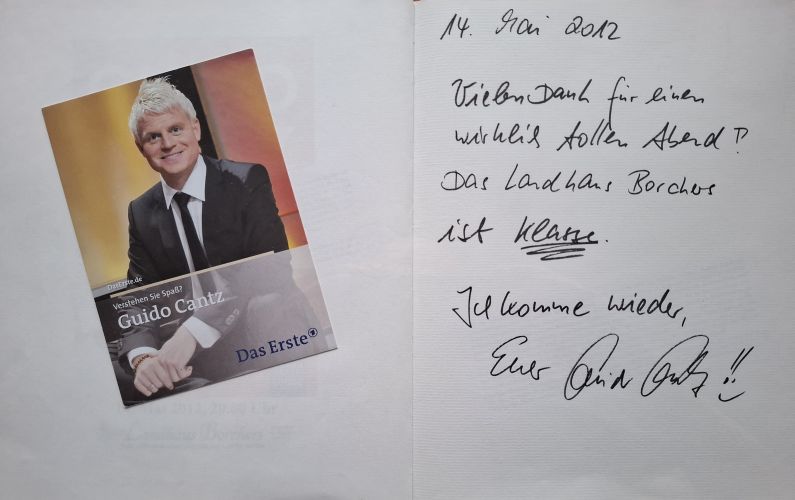 DasErste.de
Verstehen Sie Spaß?
Guido Cantz
Das Erste
2012, 20.00 Uhr
Landhaus Borchers
14. Mai 2012
Vielen Dank für einen
wirklich tollen Abend!!
Das Landhaus Borchers
ist klasse.
Ich komme wieder,
Euer Guido Cantz!!